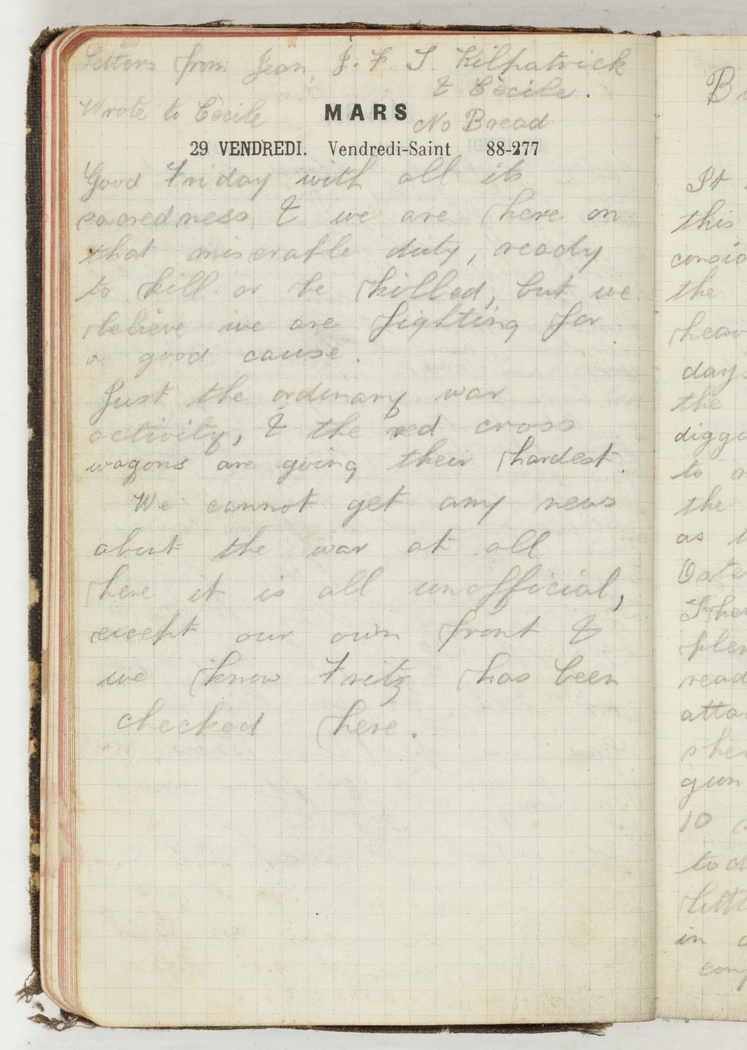 Letters from Jean, J. F. S. Kilpatrick
& Cecile.
Wrote to Cecile
MARS
No Bread
29 VENDREDI. Vendredi-Saint 88-277
Good Friday with all its
sacredness & we are here on
that miserable duty, ready
to kill or be killed, but we
believe we are fighting for
a good cause.
Just the ordinary war
activity, & the red cross
wagons are going their hardest.
We cannot get any news
about the war at all
here it is all unofficial,
except our own front &
we know Fritz has been
checked here.
It
this
the
days
the
to
the
as
10
in